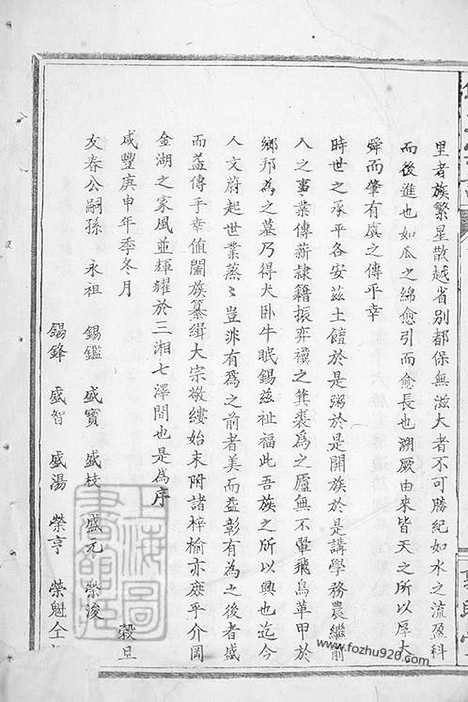 里者族繁星散越省別都保無滋大者不可勝紀如水之流盈科
而後進也如瓜之綿愈引而愈長也溯厥由來皆天之所以厚大
舜而肇有虞之傳乎幸
時世之承平各安茲土饘於是粥於是開族於是講學務農繼前
人之事業傳薪隸籍振弈禩之箕裘為之廬無不翬飛鳥革甲於
鄉邦為之墓乃得犬卧牛眠錫茲祉福此吾族之所以興也迄今
人文蔚起世業蒸〻豈非有為之前者美而益彰有為之後者盛
而益傳乎幸值闔族纂緝大宗敬縷始末附諸梓榆亦庶乎介岡
金湖之家風並輝耀於三湘七澤間也是為序
咸豐庚申年季冬月　　穀旦
友春公嗣孫　永祖　錫鑑　盛寶　盛枝　盛元　榮浚
錫鋒　盛智　盛湯　榮亨　榮魁　仝
上海圖書館藏
www.fozhu920.com